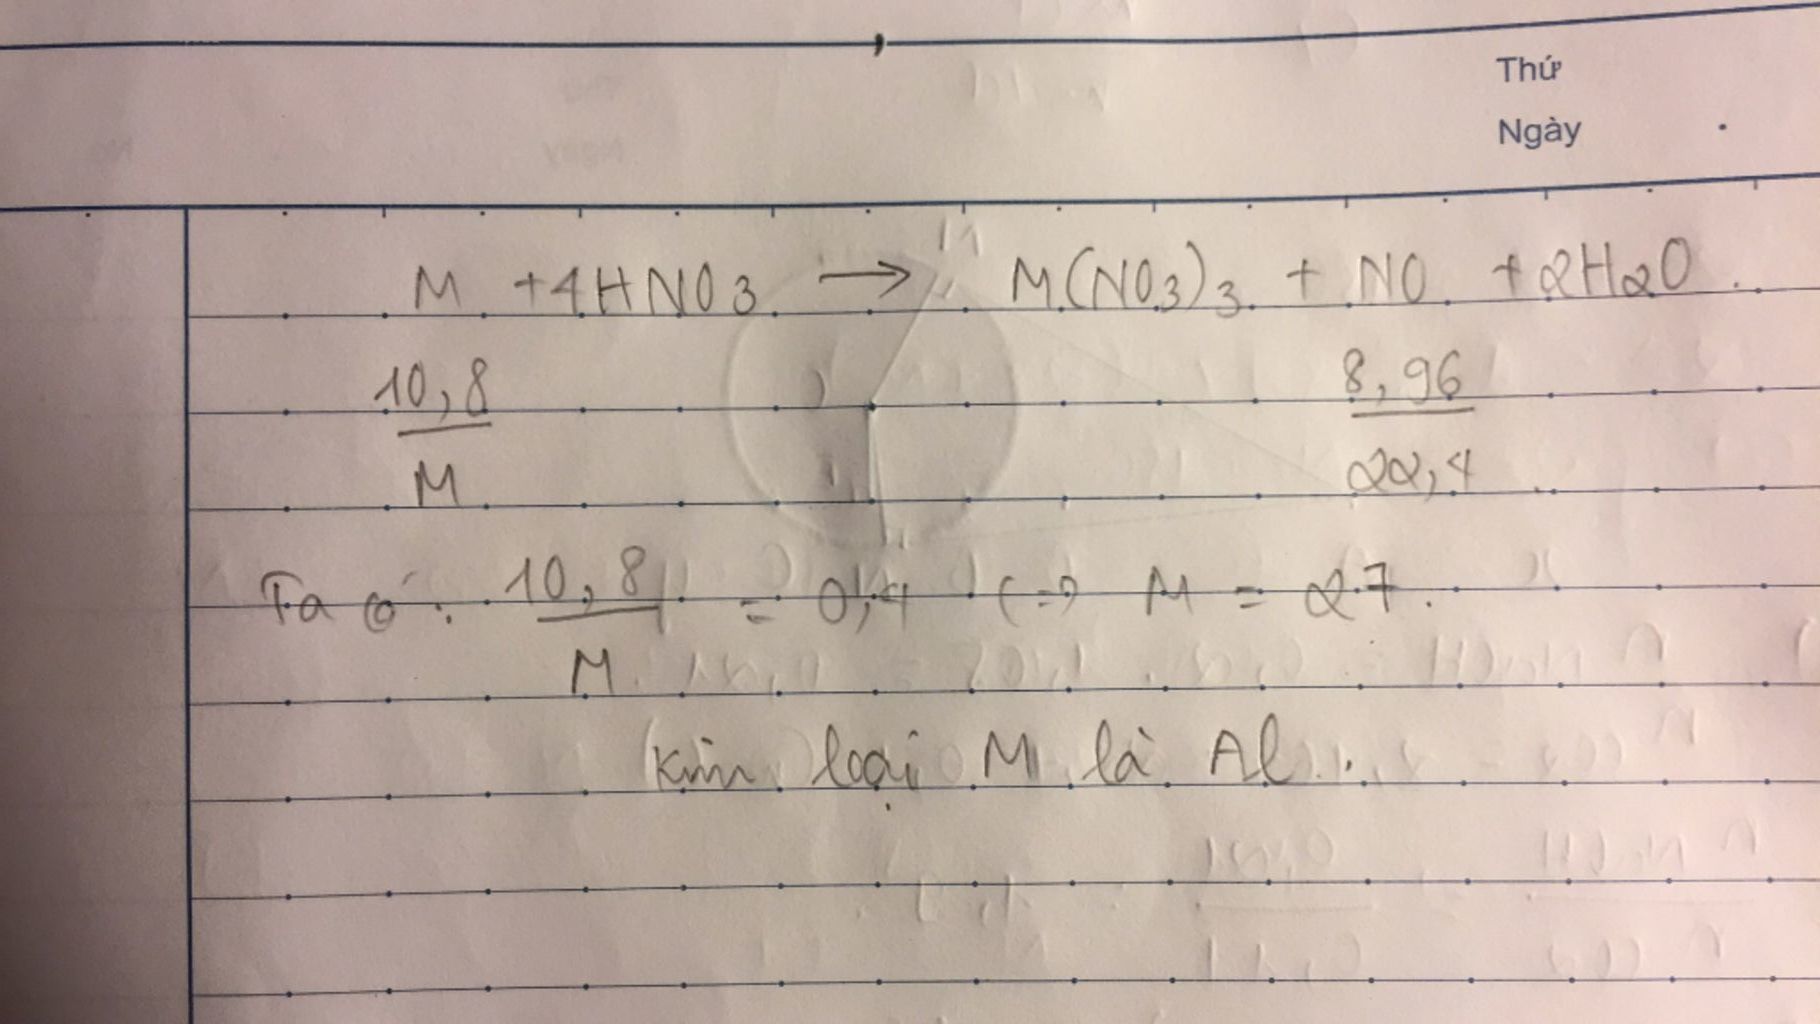 Thứ
Ngày
M + 4HNO3 → M(NO3)3 + NO + 2H2O.
10,8 8,96
M 22,4
Ta có: 10,8 = 0,4 (=) M = 27.
M
Kim loại M là Al.